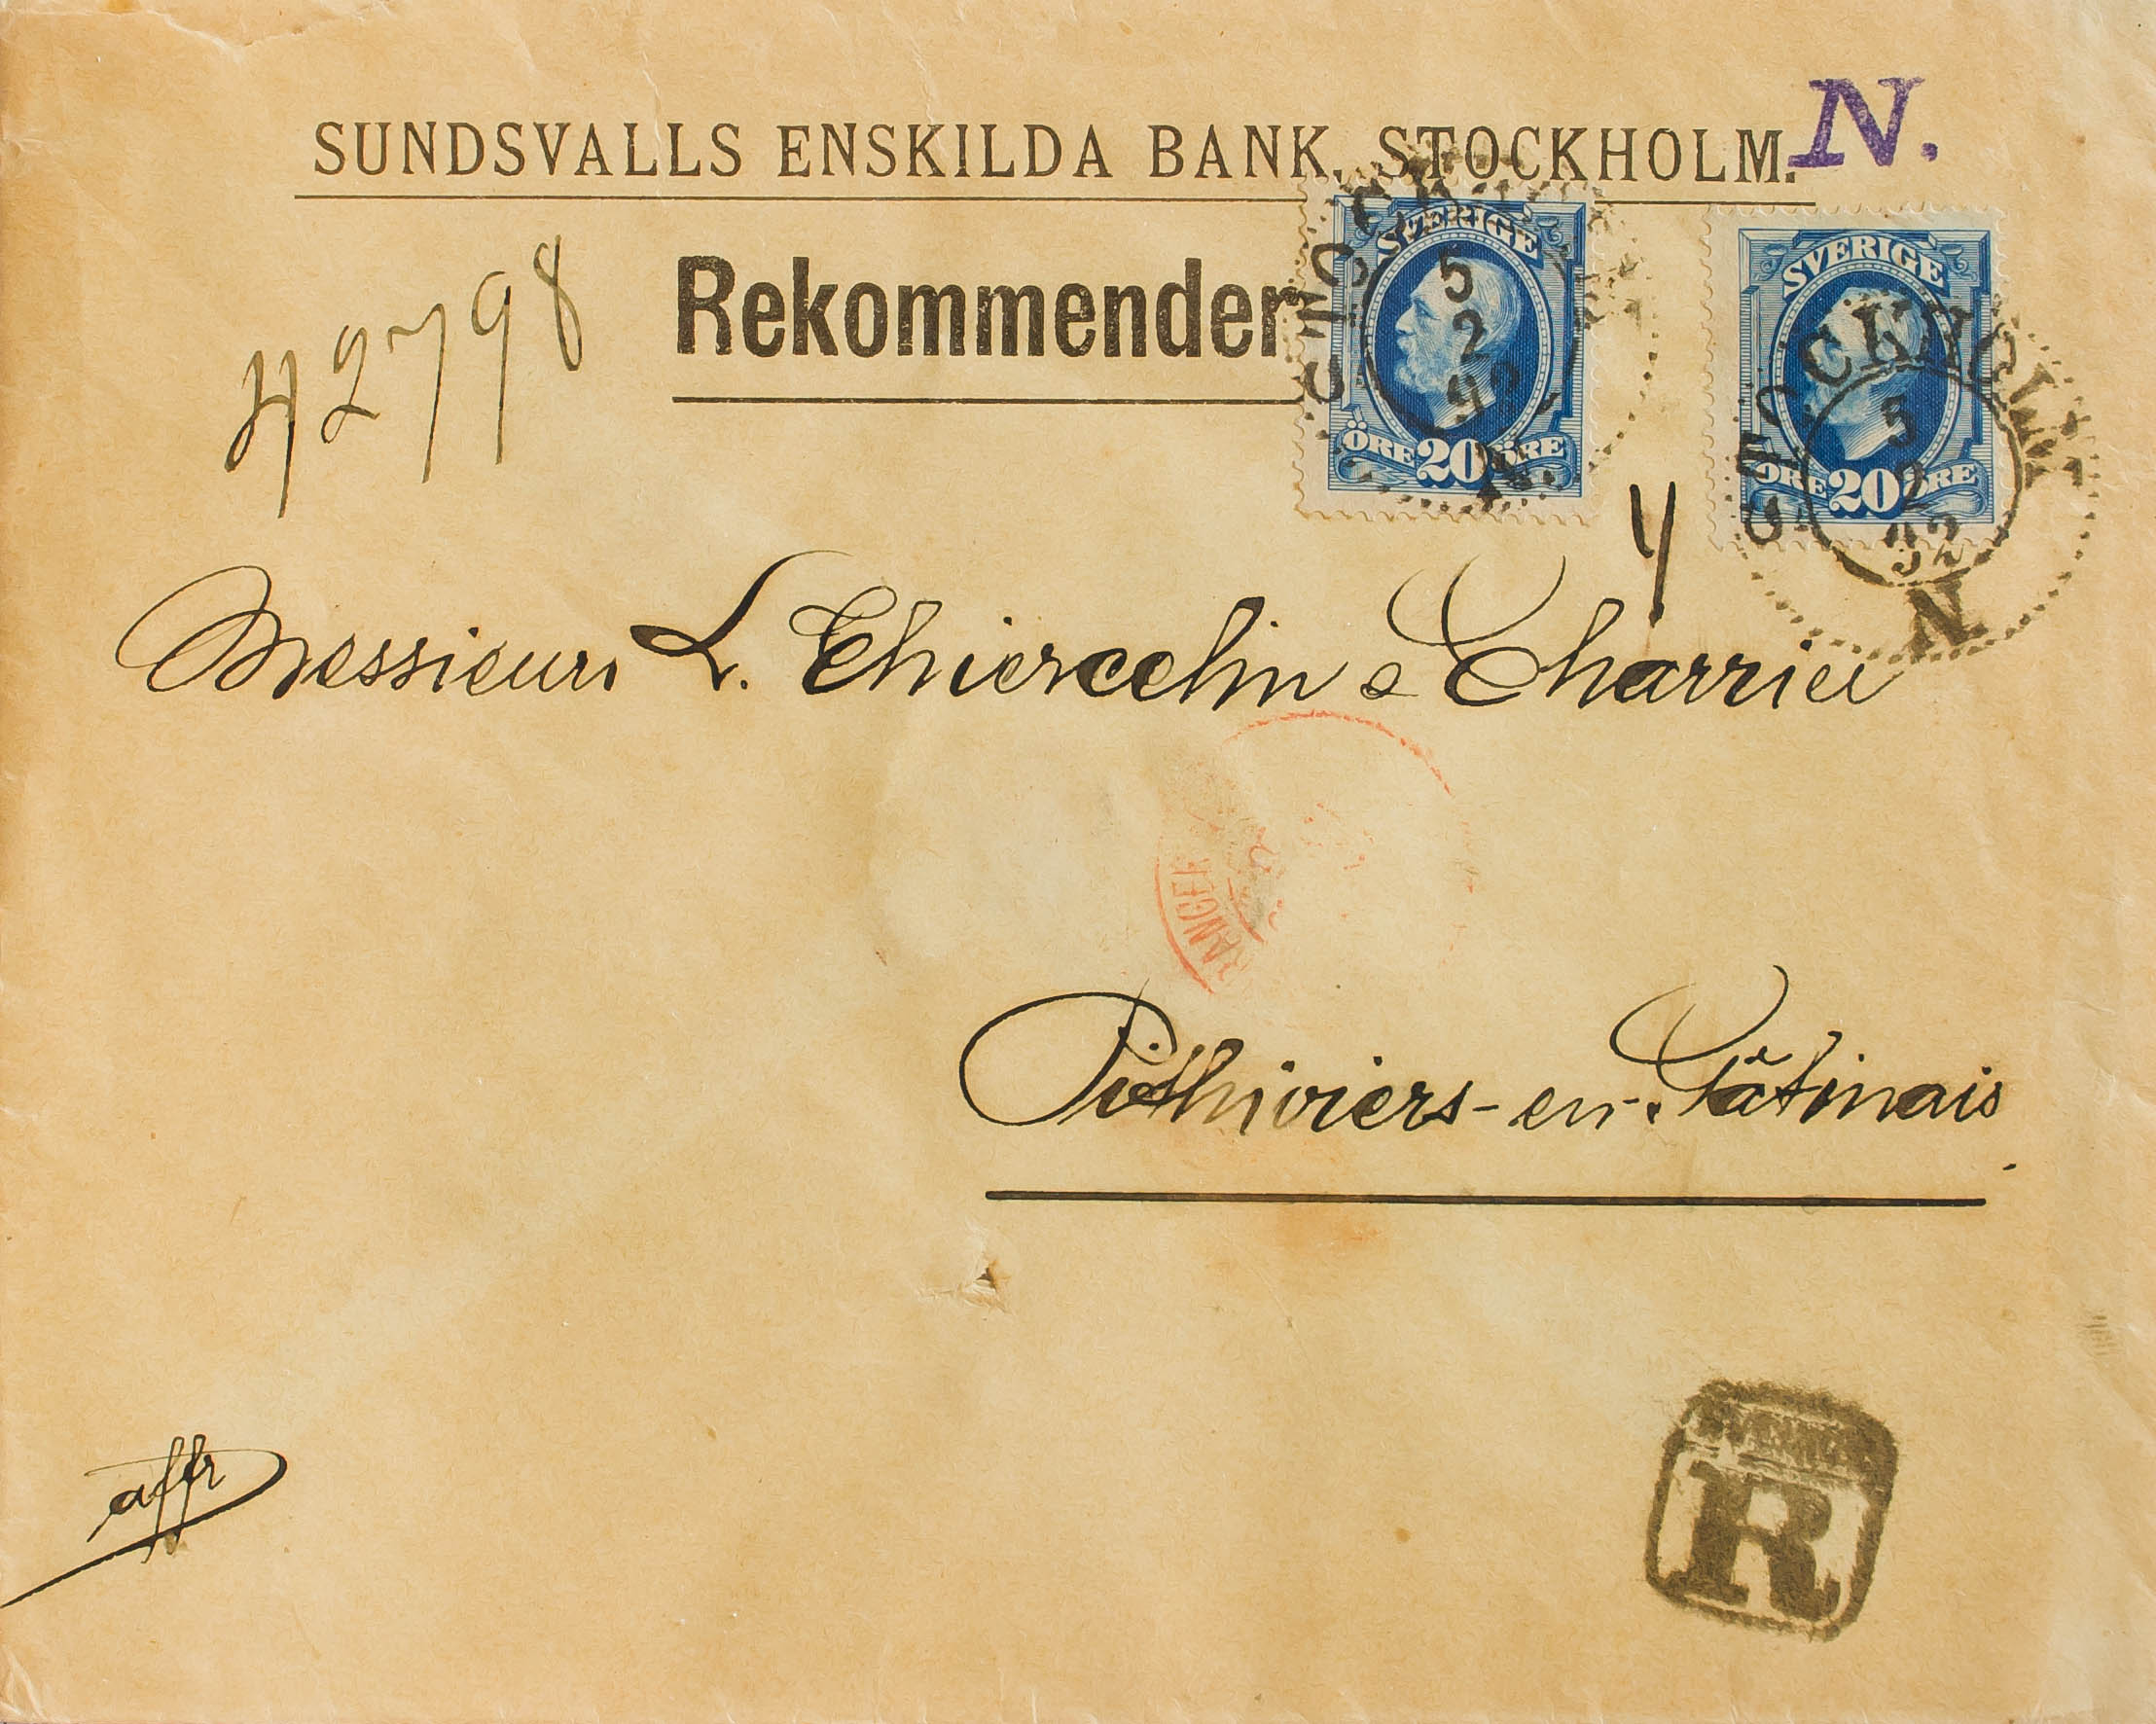 SUNDSVALLS ENSKILDA BANK, STOCKHOLM.
N.
Rekommender
42798
SVERIGE
ÖRE 20 ÖRE
5
2
92
N.
SVERIGE
ÖRE 20 ÖRE
STOCKHOLM
5
2
92
N.
Messieurs L. Thiercelin & Charrier
RANGER
Pithiviers-en-Gâtinais
affr
R